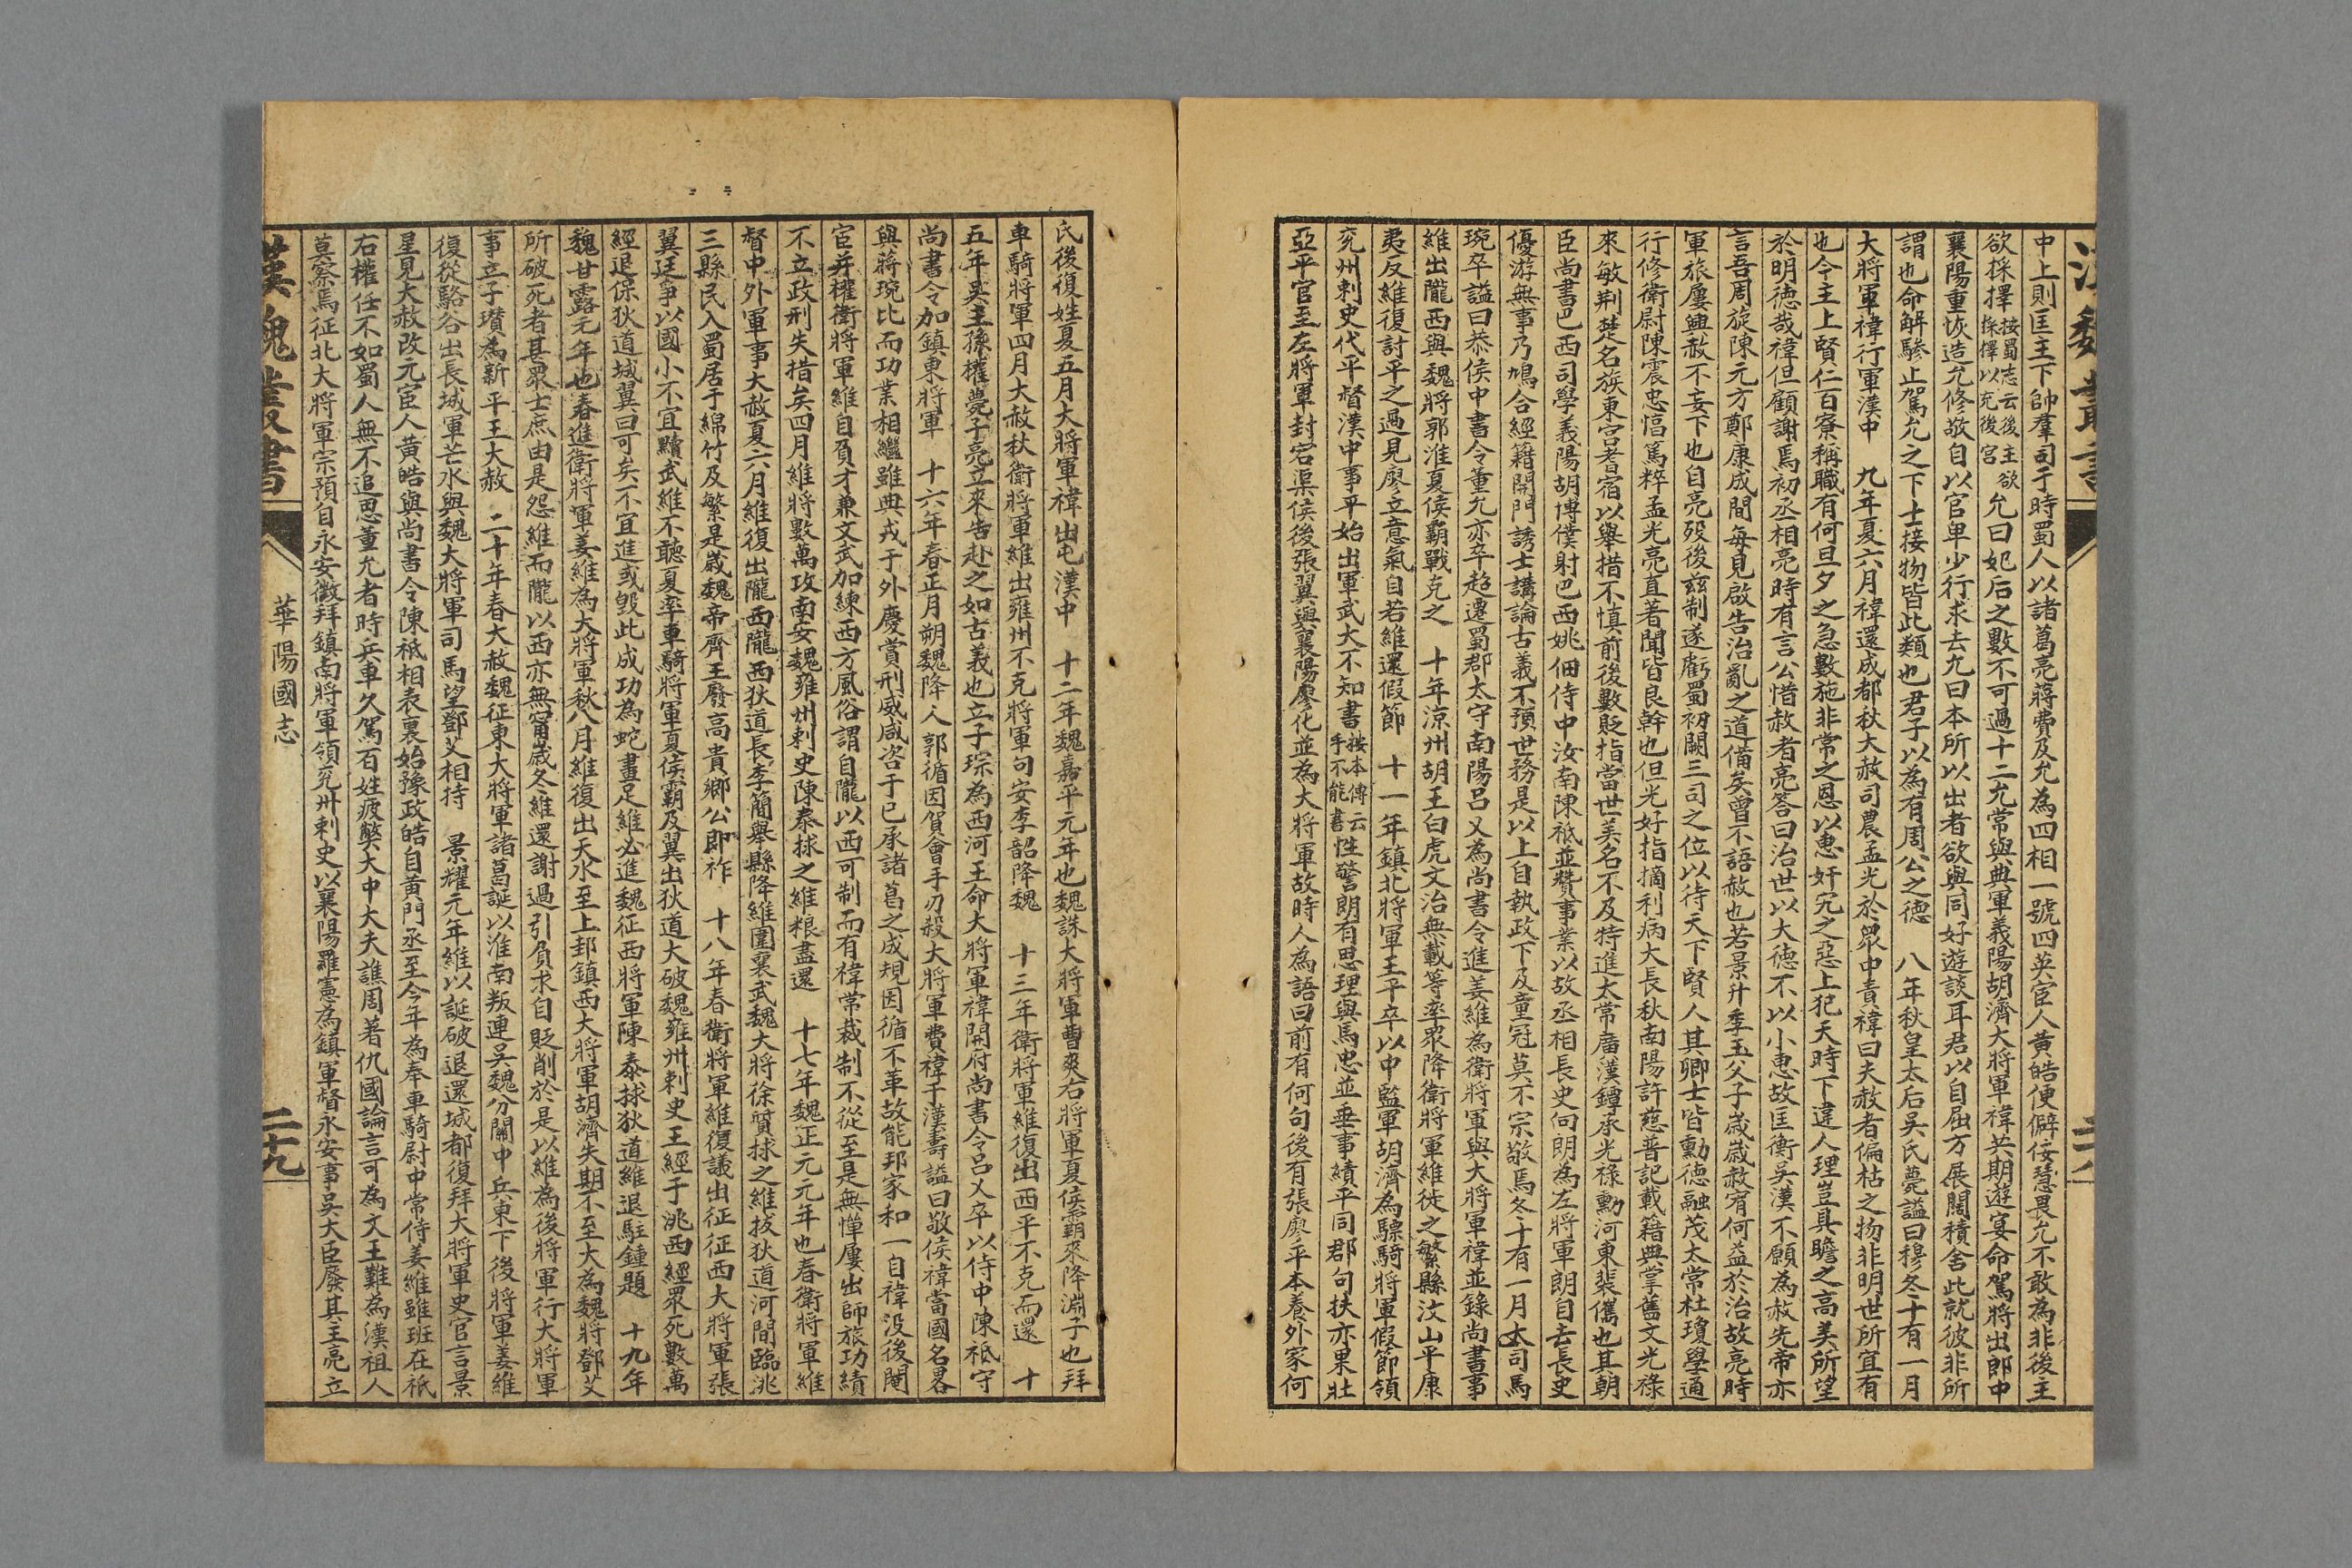 漢魏叢書
中上則匡主下帥羣司于時蜀人以諸葛亮蔣費及允為四相一號四英宦人黃皓便僻佞慧畏允不敢為非後主
欲採擇按蜀志云後主欲採擇以充後宮允曰妃后之數不可過十二允常與典軍義陽胡濟大將軍禕共期遊宴命駕將出郎中
襄陽重恢造允修敬自以官卑少行求去允曰本所以出者欲與同好遊談耳君以自屈方展闊積舍此就彼非所
謂也命解驂止駕允之下士接物皆此類也君子以為有周公之德　八年秋皇太后吳氏薨諡曰穆冬十有一月
大將軍禕行軍漢中　九年夏六月禕還成都秋大赦司農孟光於眾中責禕曰夫赦者偏枯之物非明世所宜有
也今主上賢仁百寮稱職有何旦夕之急數施非常之恩以惠奸宄之惡上犯天時下違人理豈具瞻之高美所望
於明德哉禕但顧謝焉初丞相亮時有言公惜赦者亮答曰治世以大德不以小惠故匡衡吳漢不願為赦先帝亦
言吾周旋陳元方鄭康成間每見啟告治亂之道備矣曾不語赦也若景升季玉父子歲歲赦宥何益於治故亮時
軍旅屢興赦不妄下也自亮歿後茲制遂虧蜀初闕三司之位以待天下賢人其卿士皆勳德融茂太常杜瓊學通
行修衛尉陳震忠愊篤粹孟光亮直著聞皆良幹也但光好指摘利病大長秋南陽許慈普記載籍典掌舊文光祿
來敏荆楚名族東宮耆宿以舉措不慎前後數貶指當世美名不及特進太常廣漢鐔承光祿勳河東裴儁也其朝
臣尚書巴西司學義陽胡博僕射巴西姚佃侍中汝南陳祗並贊事業以故丞相長史向朗為左將軍朗自去長史
優游無事乃鳩合經籍開門誘士講論古義不預世務是以上自執政下及童冠莫不宗敬焉冬十有一月大司馬
琬卒諡曰恭侯中書令董允亦卒超遷蜀郡太守南陽呂乂為尚書令進姜維為衛將軍與大將軍禕並錄尚書事
維出隴西與魏將郭淮夏侯霸戰克之　十年涼州胡王白虎文治無戴等率眾降衛將軍維徙之繁縣汶山平康
夷反維復討平之過見廖立意氣自若維還假節　十一年鎮北將軍王平卒以中監軍胡濟為驃騎將軍假節領
兖州刺史代平督漢中事平始出軍武大不知書按本傳云手不能書性警朗有思理與馬忠並垂事績平同郡句扶亦果壯
亞平官至左將軍封宕渠侯後張翼與襄陽廖化並為大將軍故時人為語曰前有何句後有張廖平本養外家何
氏後復姓夏五月大將軍禕出屯漢中　十二年魏嘉平元年也魏誅大將軍曹爽右將軍夏侯霸來降淵子也拜
車騎將軍四月大赦秋衛將軍維出雍州不克將軍句安李韶降魏　十三年衛將軍維復出西平不克而還　十
五年吳主孫權薨子亮立來告赴之如古義也立子琮為西河王命大將軍禕開府尚書令呂乂卒以侍中陳祗守
尚書令加鎮東將軍　十六年春正月朔魏降人郭循因賀會手刃殺大將軍費禕于漢壽諡曰敬侯禕當國名畧
與蔣琬比而功業相繼雖典戎于外慶賞刑威咸咨于己承諸葛之成規因循不革故能邦家和一自禕没後閹
宦并權衛將軍維自負才兼文武加練西方風俗謂自隴以西可制而有禕常裁制不從至是無憚屢出師旅功績
不立政刑失措矣四月維將數萬攻南安魏雍州刺史陳泰捄之維粮盡還　十七年魏正元元年也春衛將軍維
督中外軍事大赦夏六月維復出隴西隴西狄道長李簡舉縣降維圍襄武魏大將徐質捄之維拔狄道河間臨洮
三縣民入蜀居于綿竹及繁是歲魏帝齊王廢高貴鄉公卽祚　十八年春衛將軍維復議出征征西大將軍張
翼廷爭以國小不宜黷武維不聽夏率車騎將軍夏侯霸及翼出狄道大破魏雍州刺史王經于洮西經眾死數萬
經退保狄道城翼曰可矣不宜進或毀此成功為蛇畫足維必進魏征西將軍陳泰捄狄道維退駐鍾題　十九年
魏甘露元年也春進衛將軍姜維為大將軍秋八月維復出天水至上邽鎮西大將軍胡濟失期不至大為魏將鄧艾
所破死者甚眾士庶由是怨維而隴以西亦無甯歲冬維還謝過引負求自貶削於是以維為後將軍行大將軍
事立子瓚為新平王大赦　二十年春大赦魏征東大將軍諸葛誕以淮南叛連吳魏分關中兵東下後將軍姜維
復從駱谷出長城軍芒水與魏大將軍司馬望鄧艾相持　景耀元年維以誕破退還城都復拜大將軍史官言景
星見大赦改元宦人黃皓與尚書令陳祗相表裏始豫政皓自黃門丞至今年為奉車騎尉中常侍姜維雖班在祗
右權任不如蜀人無不追思董允者時兵車久駕百姓疲獘大中大夫譙周著仇國論言可為文王難為漢祖人
莫察焉征北大將軍宗預自永安徵拜鎮南將軍領兖州刺史以襄陽羅憲為鎮軍督永安事吳大臣廢其主亮立
漢魏叢書
華陽國志
二十九